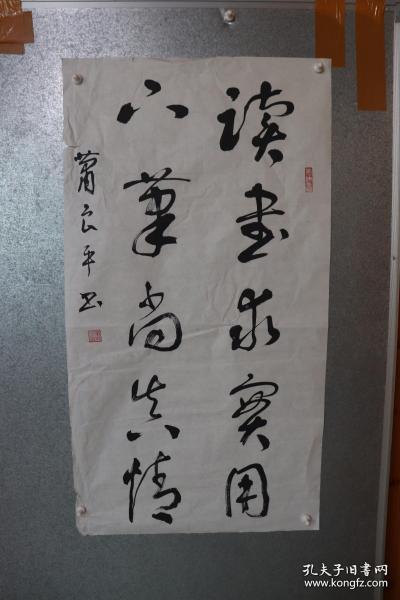 讀書求實用
下筆尚真情
蕭良平书
孔夫子旧书网
www.kongfz.com